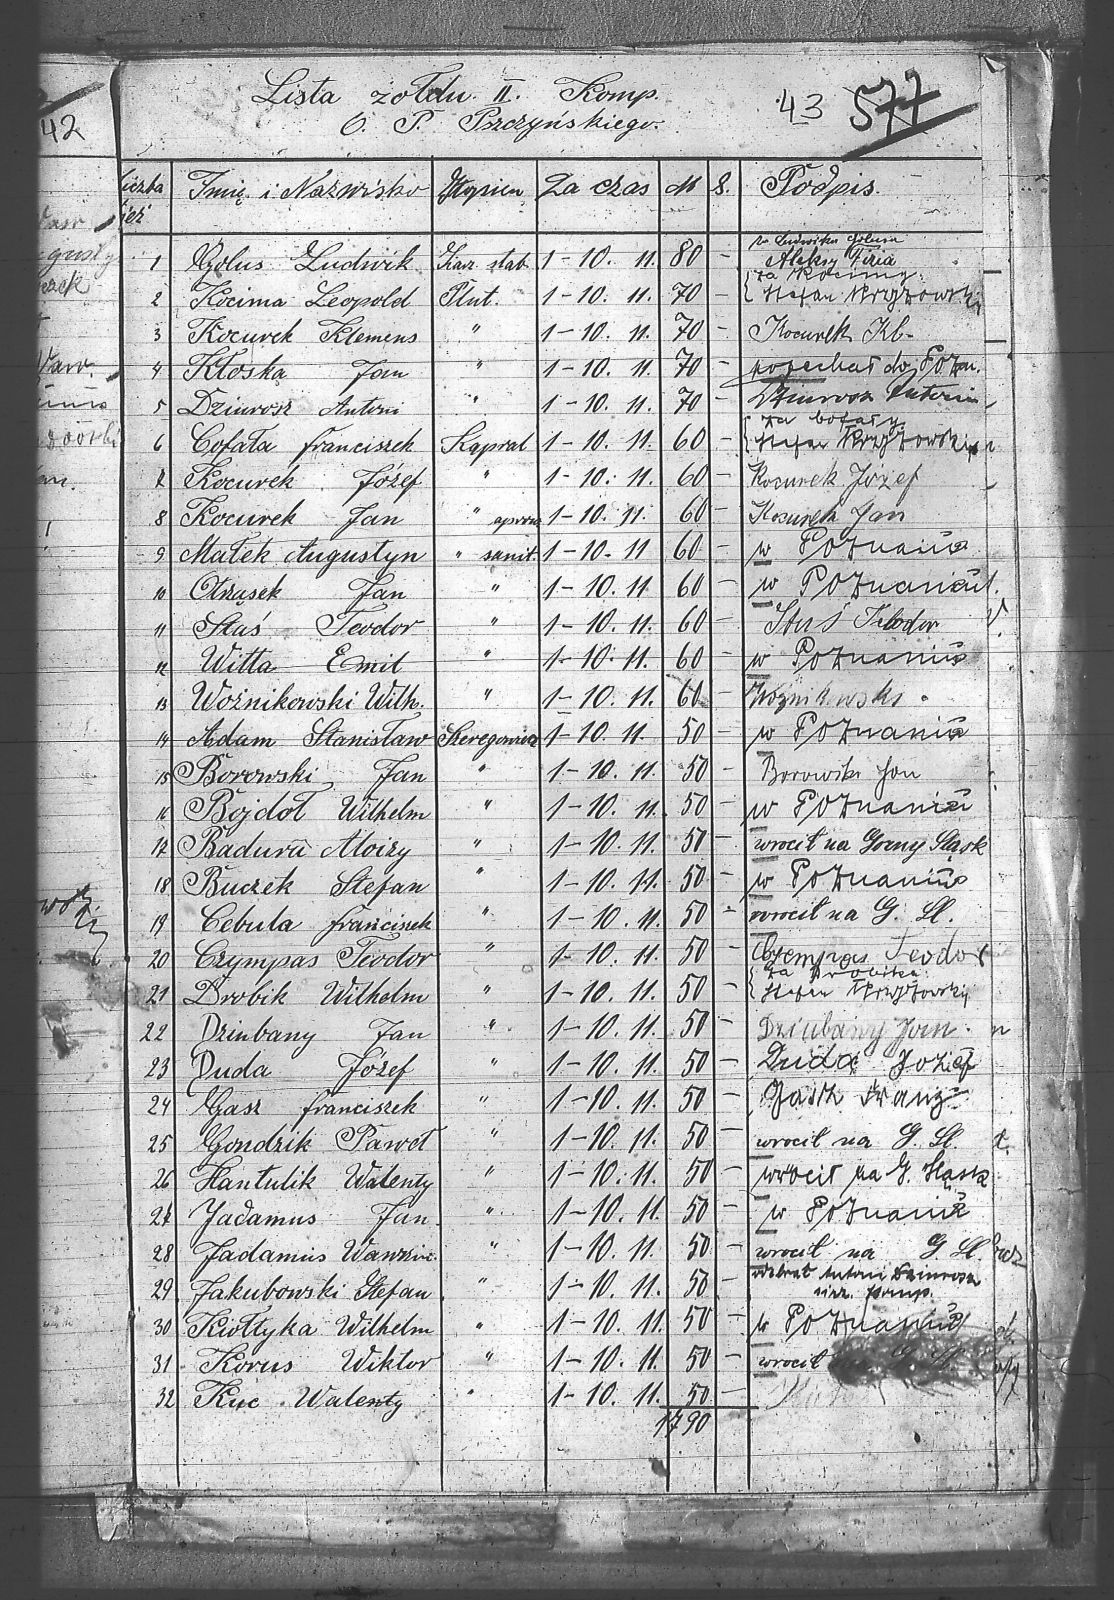 42
Lista żołdu II. Komp.
O. P. Pszczyńskiego.
43 577
Liczba Imię i Nazwisko Stopień Za czas M S. Podpis.
1 Golus Ludwik 1-10. 11. 80 - za Ludwika Golusa
Aleksy Fizia
2 Kocima Leopold Plut. 1-10. 11. 70 - za Kocimy:
Stefan Krzyżowski
3 Kocurek Klemens " 1-10. 11. 70 - Kocurek Kl-
4 Kłoska Jan " 1-10. 11. 70 - pojechał do Pozn.
5 Dziurosz Antoni " 1-10. 11. 70 - Dziurosz Antoni
6 Cofała Franciszek Kapral 1-10. 11. 60 - za Cofały.
Stefan Krzyżowski
7 Kocurek Józef " 1-10. 11. 60 - Kocurek Józef
8 Kocurek Jan " 1-10. 11. 60 - Kocurek Jan
9 Małek Augustyn " sanit. 1-10. 11 60 - w Poznaniu
10 Otrząsek Jan " 1-10. 11. 60 - w Poznaniu
11 Staś Teodor " 1-10. 11. 60 - Staś Teodor
12 Witta Emil " 1-10. 11. 60 - w Poznaniu
13 Woźnikowski Wilh. " 1-10. 11. 60 - Woźnikowski
14 Adam Stanisław Szeregowiec 1-10. 11. 50 - w Poznaniu
15 Borowski Jan " 1-10. 11. 50 - Borowski Jan
16 Bojdoł Wilhelm " 1-10. 11. 50 - w Poznaniu
17 Badura Aloizy " 1-10. 11. 50 - wrócił na Górny Śląsk
18 Buczek Stefan " 1-10. 11. 50 - w Poznaniu
19 Cebula Franciszek " 1-10. 11. 50 - wrócił na G. Śl.
20 Czympas Teodor " 1-10. 11. 50 - Czempas Teodor
21 Drobik Wilhelm " 1-10. 11. 50 - za Drobika:
Stefan Krzyżowski
22 Dziubany Jan " 1-10. 11. 50 - Dziubany Jan
23 Duda Józef " 1-10. 11. 50 - Duda Jozef
24 Gasz Franciszek " 1-10. 11. 50 - Gasch Franz
25 Gondzik Paweł " 1-10. 11. 50 - wrócił na G. Śl.
26 Hantulik Walenty " 1-10. 11. 50 - wrócił na G. Śląsk
27 Jadamus Jan " 1-10. 11. 50 - w Poznaniu
28 Jadamus Wawrzin. " 1-10. 11. 50 - wrócił na G. Śl.
29 Jakubowski Stefan " 1-10. 11. 50 - odebrał Antoni Dziurosz
sierż. komp.
30 Kiołtyka Wilhelm " 1-10. 11. 50 - w Poznaniu
31 Korus Wiktor " 1-10. 11. 50 - wrócił na G. Śl.
32 Kuc Walenty " 1-10. 11. 50 -
1790